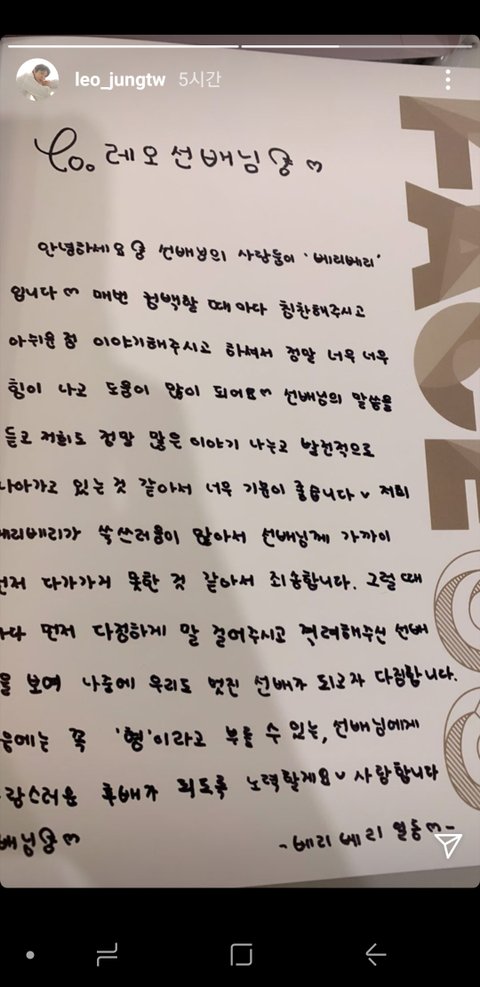 leo_jungtw 5시간
To. 레오선배님께♡
안녕하세요 선배님의 사랑둥이 '베리베리'
입니다♡ 매번 컴백할 때마다 칭찬해주시고
아쉬운 점 이야기해주시고 하셔서 정말 너무 너무
힘이 나고 도움이 많이 되어요♡ 선배님의 말씀을
듣고 저희도 정말 많은 이야기 나누고 발전적으로
나아가고 있는 것 같아서 너무 기분이 좋습니다♥ 저희
베리베리가 쑥쓰러움이 많아서 선배님께 가까이
먼저 다가가지 못한 것 같아서 죄송합니다. 그럴 때
마다 먼저 다정하게 말 걸어주시고 격려해주신 선배
을 보며 나중에 우리도 멋진 선배가 되고자 다짐합니다.
음에는 꼭 '형'이라고 부를 수 있는, 선배님에게
랑스러운 후배가 되도록 노력할게요♥ 사랑합니다
배님♡
-베리베리 일동♡-
FACE